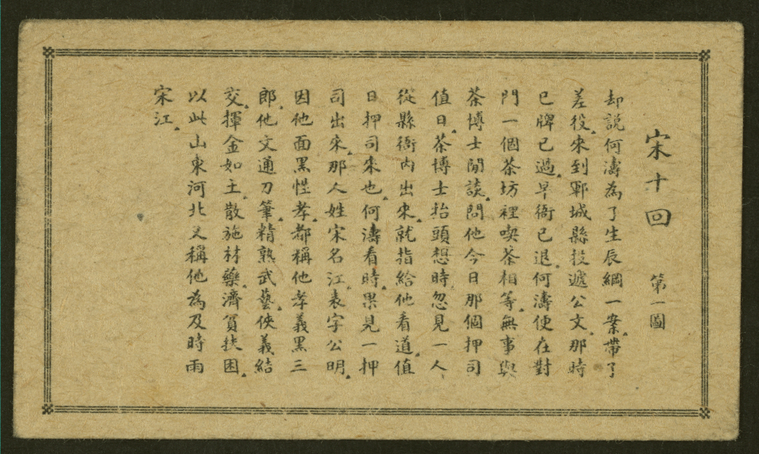 宋十回 第一圖
却説何濤為了生辰綱一案帶了
差役來到鄆城縣投遞公文那時
已牌已過早衙已退何濤便在對
門一個茶坊裡喫茶相等無事與
茶博士閒談問他今日那個押司
值日茶博士抬頭想時忽見一人
從縣衙內出來就指給他看道值
日押司來也何濤看時果見一押
司出來那人姓宋名江表字公明
因他面黑性孝都稱他孝義黑三
郎他文通刀筆精熟武藝俠義結
交揮金如土散施材藥濟貧扶困
以此山東河北又稱他為及時雨
宋江